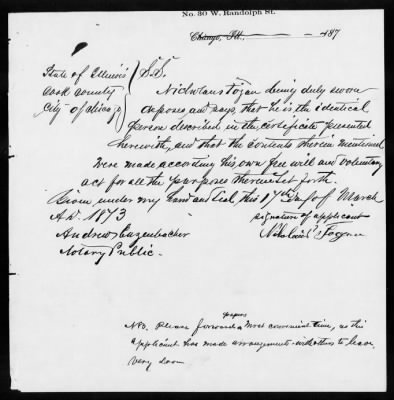 No. 30 W. Randolph St.
Chicago, Ill., 187
State of Illinois
Cook County
City of Chicago
S.S.
Nicholaus Fogan being duly sworn
deposes and says, that he is the identical
person described in the certificate presented
herewith, and that the contents therein mentioned
were made according his own free will and voluntary
act for all the purpose therein set forth.
Given under my hand and Seal, this 17th day of March
A.D. 1873
signature of applicant
Andrew Enzenbacher
Notary Public.
papers
N.B. Please forward a most convenient time, as the
applicant has made arrangements with others to leave
very soon